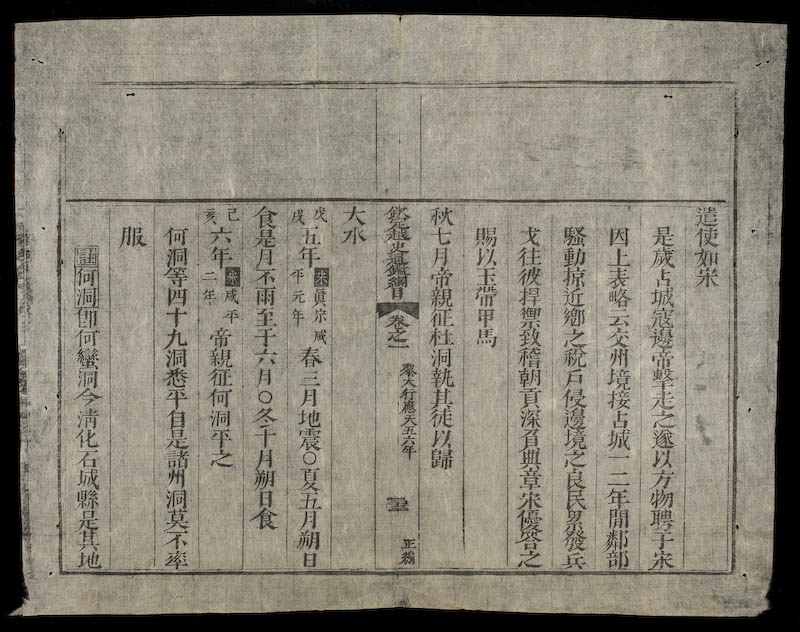 遣使如宋
是歲占城寇邊帝擊走之遂以方物聘于宋
因上表略云交州境接占城一二年間鄰部
騷動掠近鄉之稅戸侵邊境之良民累發兵
戈往彼捍禦致稽朝貢深負典章宋優答之
賜以玉帶甲馬
秋七月帝親征杜洞執其徒以歸
欽定越史通鑑綱目 卷之一 黎大行應天五六年 正編
大水
戊戌五年 宋眞宗咸平元年 春三月地震○夏五月朔日
食是月不雨至于六月○冬十月朔日食
己亥六年 宋咸平二年 帝親征何洞平之
何洞等四十九洞悉平自是諸州洞莫不率
服
註何洞卽何蠻洞今清化石城縣是其地